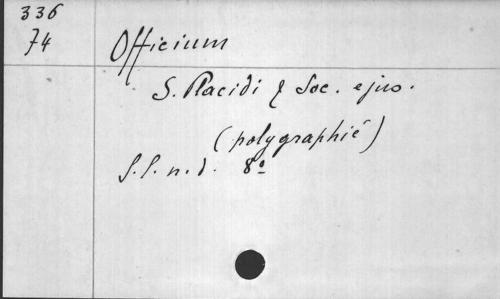 336
74
Officium
S. Placidi & Soc. ejus.
(polygraphié)
S. l. n. d. 8º